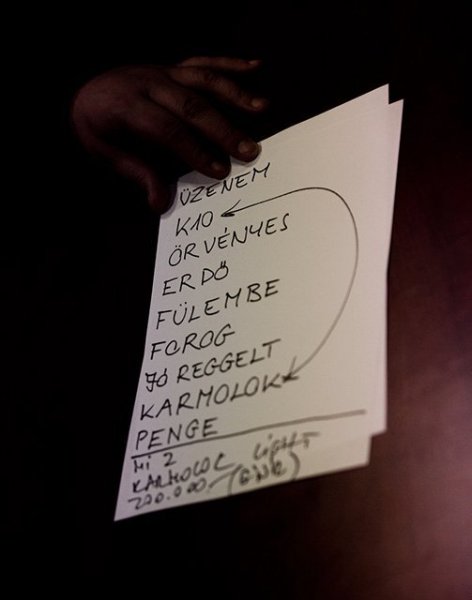 ÜZENEM
K10
ÖRVÉNYES
ERDŐ
FÜLEMBE
FOROG
JÓ REGGELT
KARMOLOK
PENGE
MI 2
KARMOLOC LIGHT
200.000.